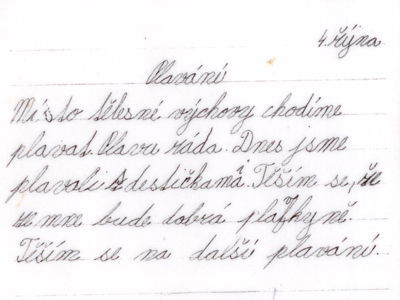 4. října
Plavání
Místo tělesné výchovy chodíme
plavat. Plavu ráda. Dnes jsme
plavali s destičkama. Těším se, že
ze mne bude dobrá plavkyně.
Těším se na další plavání.